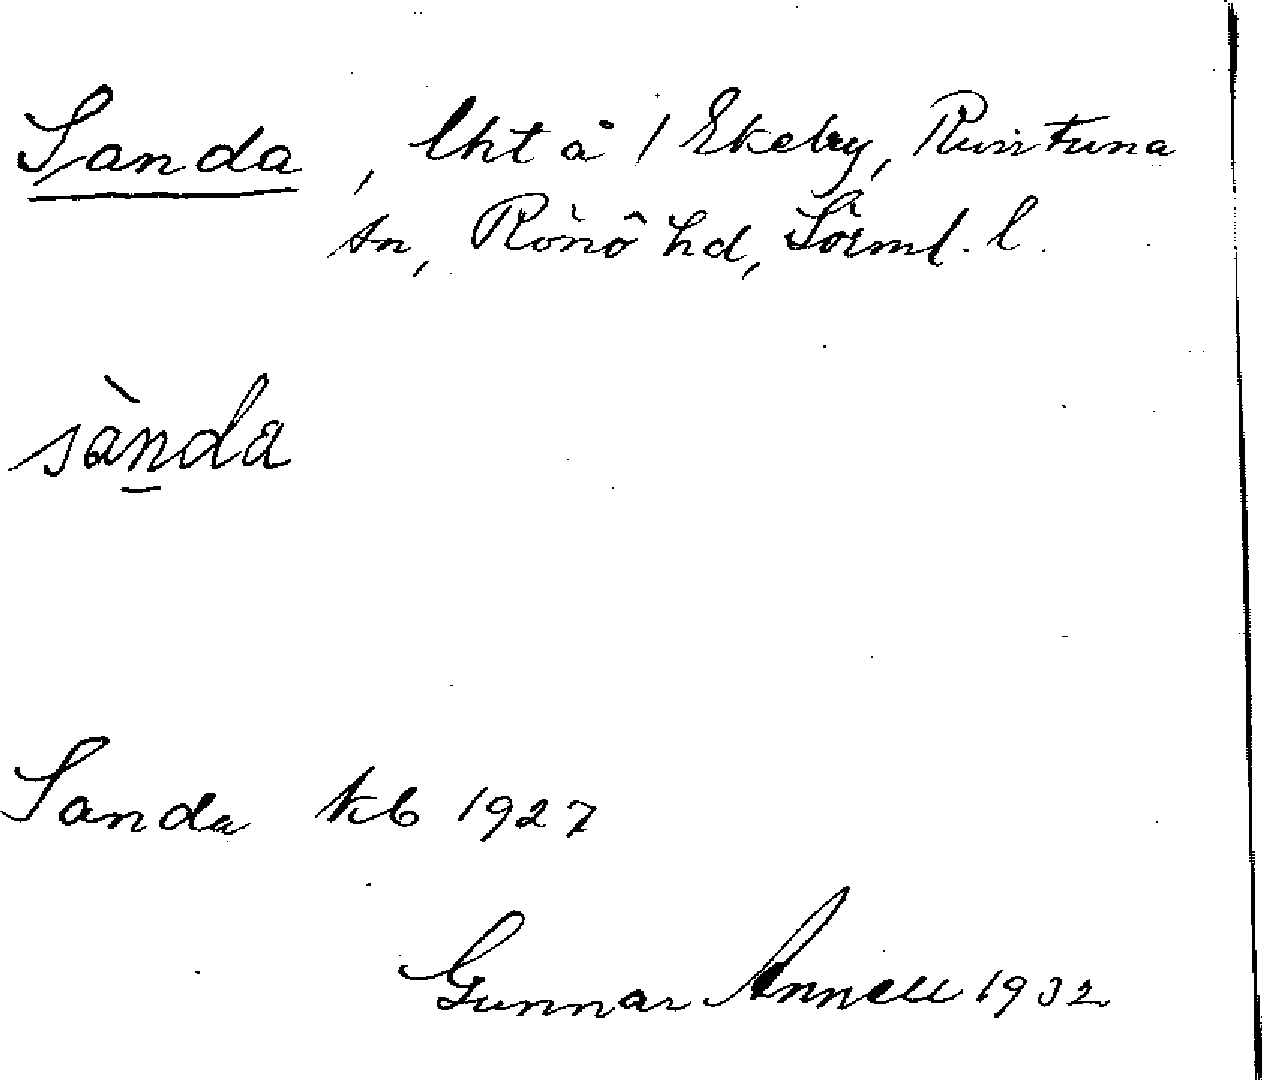 Sanda, lht å 1 Ekeby, Runtuna
sn, Rönö hd, Sörml. l.
sàn̲da
Sanda kb 1927
Gunnar Annell 1932